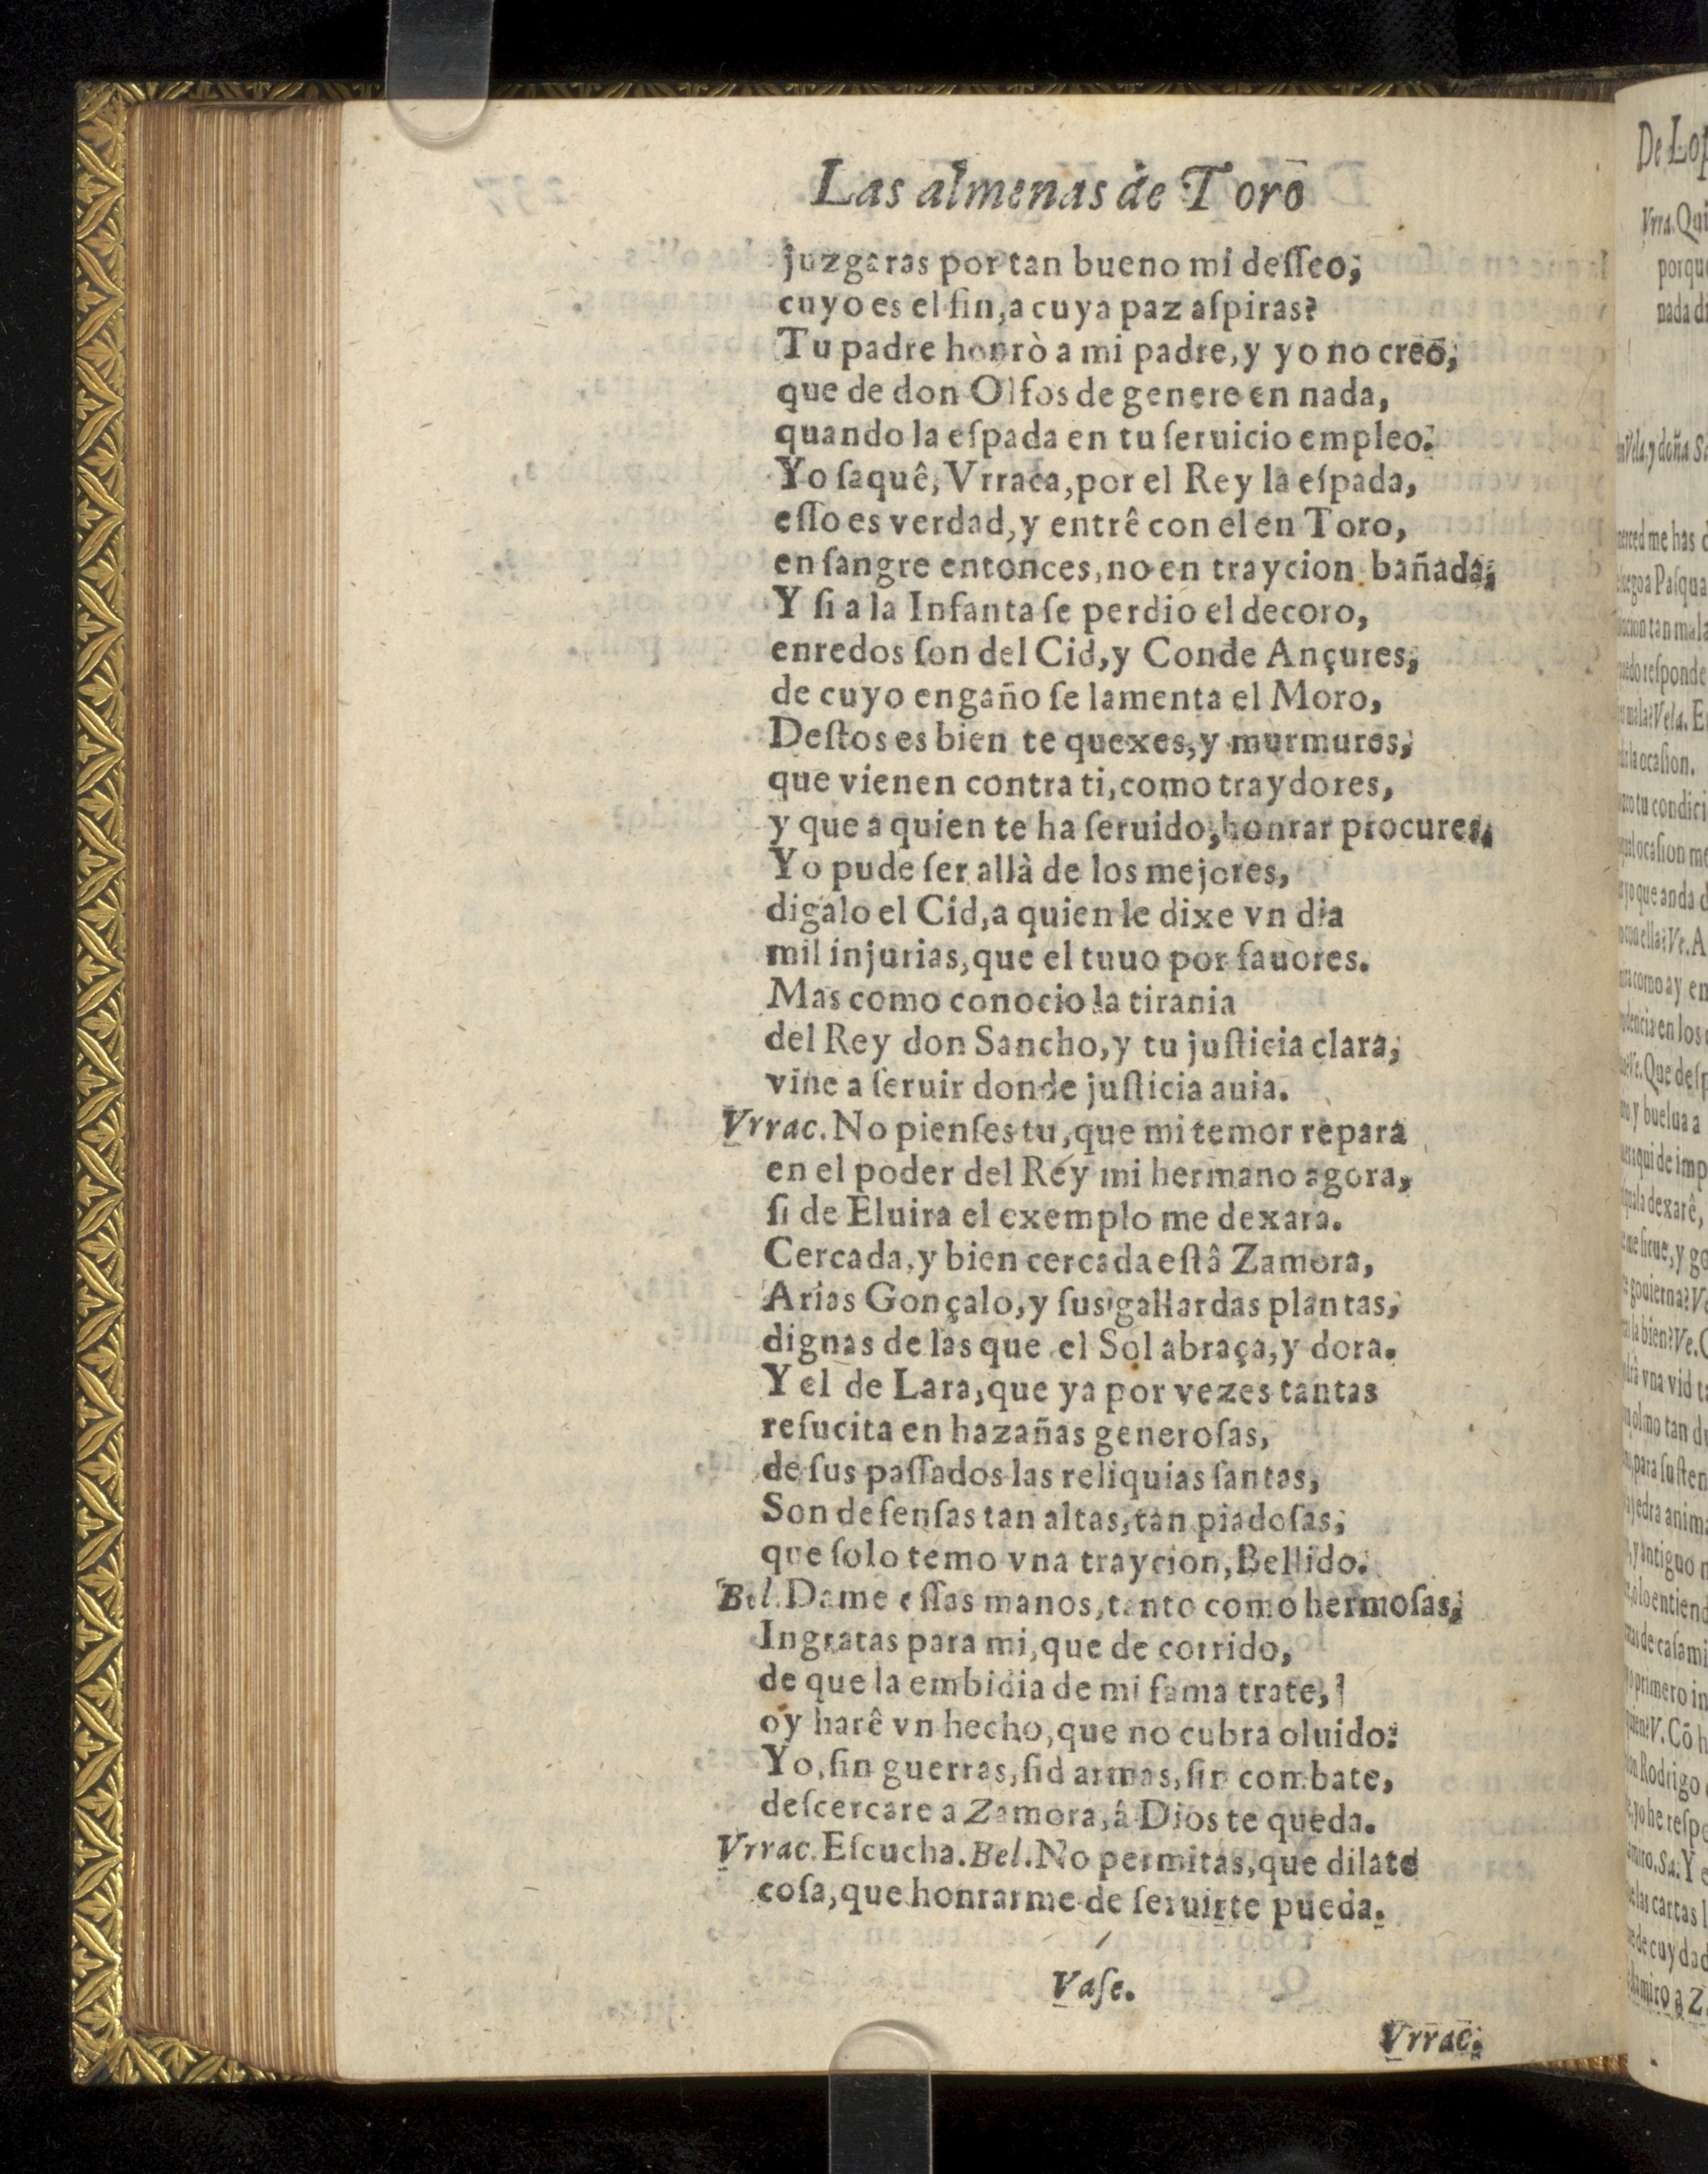 Las almenas de Toro
juzgaras por tan bueno mi deſſeo;
cuyo es el fin, a cuya paz aſpiras?
Tu padre honrò a mi padre, y yo no creo,
que de don Olfos de genere en nada,
quando la eſpada en tu ſeruicio empleo.
Yo ſaquê, Vrraca, por el Rey la eſpada,
eſſo es verdad, y entrê con el en Toro,
en ſangre entonces, no en traycion bañada;
Y ſi a la Infanta ſe perdio el decoro,
enredos ſon del Cid, y Conde Ançures,
de cuyo engaño ſe lamenta el Moro,
Deſtos es bien te quexes, y murmures,
que vienen contra ti, como traydores,
y que a quien te ha ſeruido, honrar procures.
Yo pude ſer allà de los mejores,
digalo el Cid, a quien le dixe vn dia
mil injurias, que el tuuo por fauores.
Mas como conocio la tirania
del Rey don Sancho, y tu juſticia clara,
vine a ſeruir donde juſticia auia.
Vrrac. No pienſes tu, que mi temor repara
en el poder del Rey mi hermano agora,
ſi de Eluira el exemplo me dexara.
Cercada, y bien cercada eſtâ Zamora,
Arias Gonçalo, y ſus gallardas plantas,
dignas de las que el Sol abraça, y dora.
Y el de Lara, que ya por vezes tantas
reſucita en hazañas generoſas,
de ſus paſſados las reliquias ſantas,
Son defenſas tan altas, tan piadoſas,
que ſolo temo vna traycion, Bellido.
Bel. Dame eſſas manos, tanto como hermoſas,
Ingratas para mi, que de corrido,
de que la embidia de mi fama trate,
oy harê vn hecho, que no cubra oluido:
Yo, ſin guerras, ſid armas, ſin combate,
deſcercare a Zamora, â Dios te queda.
Vrrac. Eſcucha. Bel. No permitas, que dilate
coſa, que honrarme de ſeruirte pueda.
Vaſe.
Vrrac.
De Lop
Vrra. Qui
porque
nada di